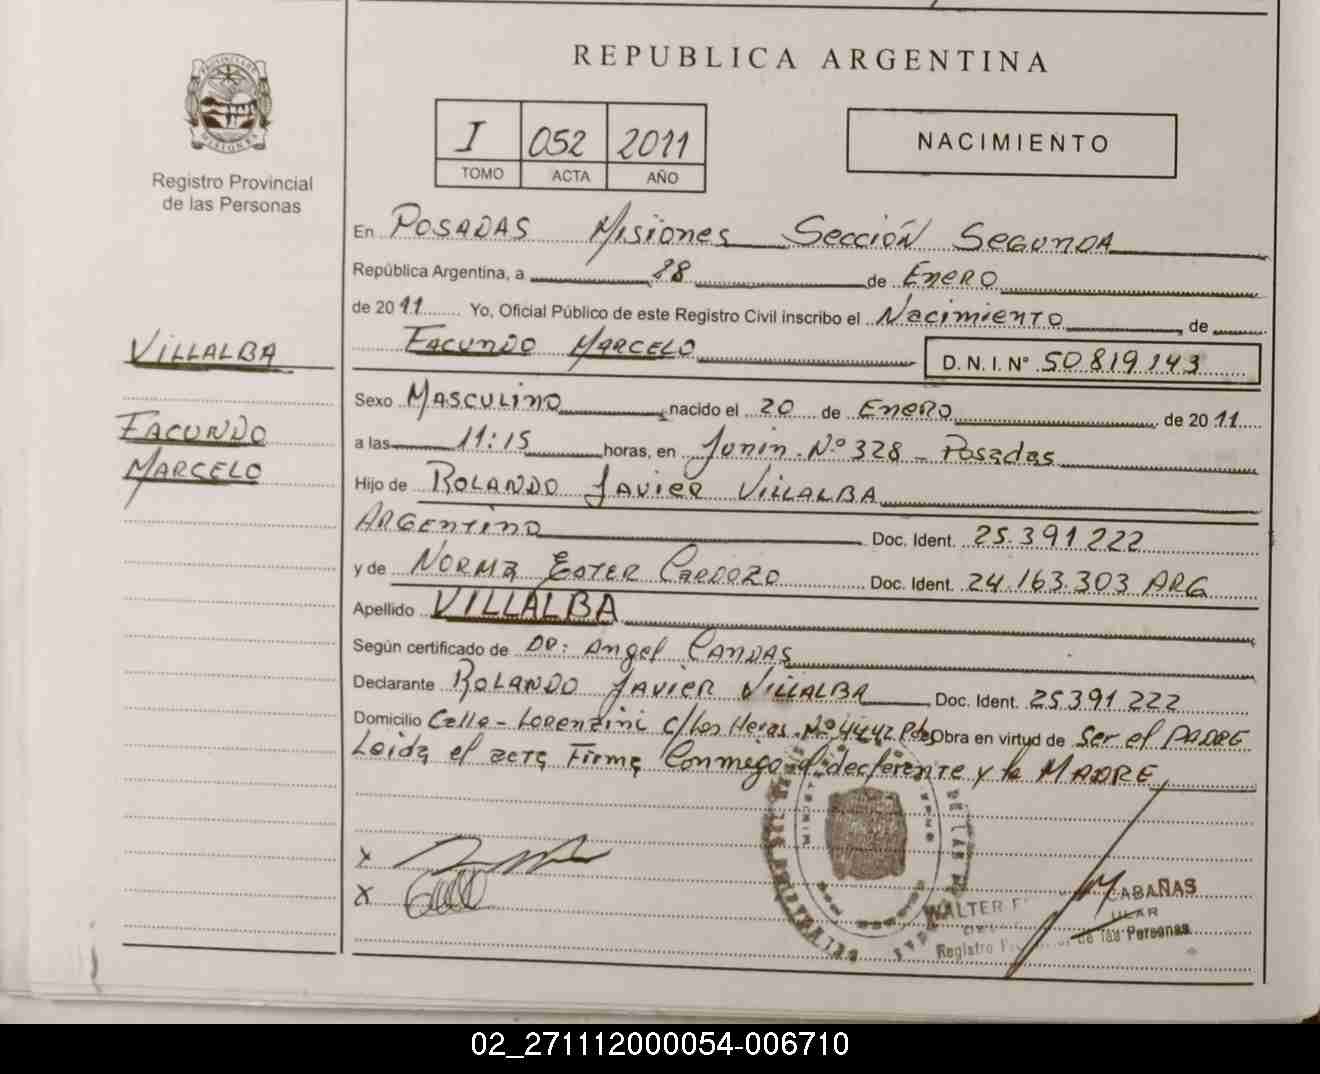 REPUBLICA ARGENTINA
PROVINCIA DE MISIONES
Registro Provincial
de las Personas
I 052 2011
TOMO ACTA AÑO
NACIMIENTO
En POSADAS Misiones Sección Segunda
República Argentina, a 28 de Enero
de 2011 Yo, Oficial Público de este Registro Civil inscribo el Nacimiento de
FACUNDO MARCELO D. N. I. N° 50819143
VILLALBA
FACUNDO
MARCELO
Sexo MASCULINO nacido el 20 de Enero de 2011
a las 11:15 horas, en Junin N° 328 - Posadas
Hijo de ROLANDO JAVIER VILLALBA
ARGENTINO Doc. Ident. 25.391222
y de NORMA ESTER CARDOZO Doc. Ident. 24.163.303 ARG
Apellido VILLALBA
Según certificado de DR: Angel CANDAS
Declarante ROLANDO JAVIER VILLALBA Doc. Ident. 25391222
Domicilio Calle - Lorenzini c/Las Heras N° 4442 Pdas Obra en virtud de Ser el PADRE
Leida el acta Firma Conmigo el declarante y la MADRE
X
X
WALTER CABAÑAS
Registro de las Personas
02_271112000054-006710